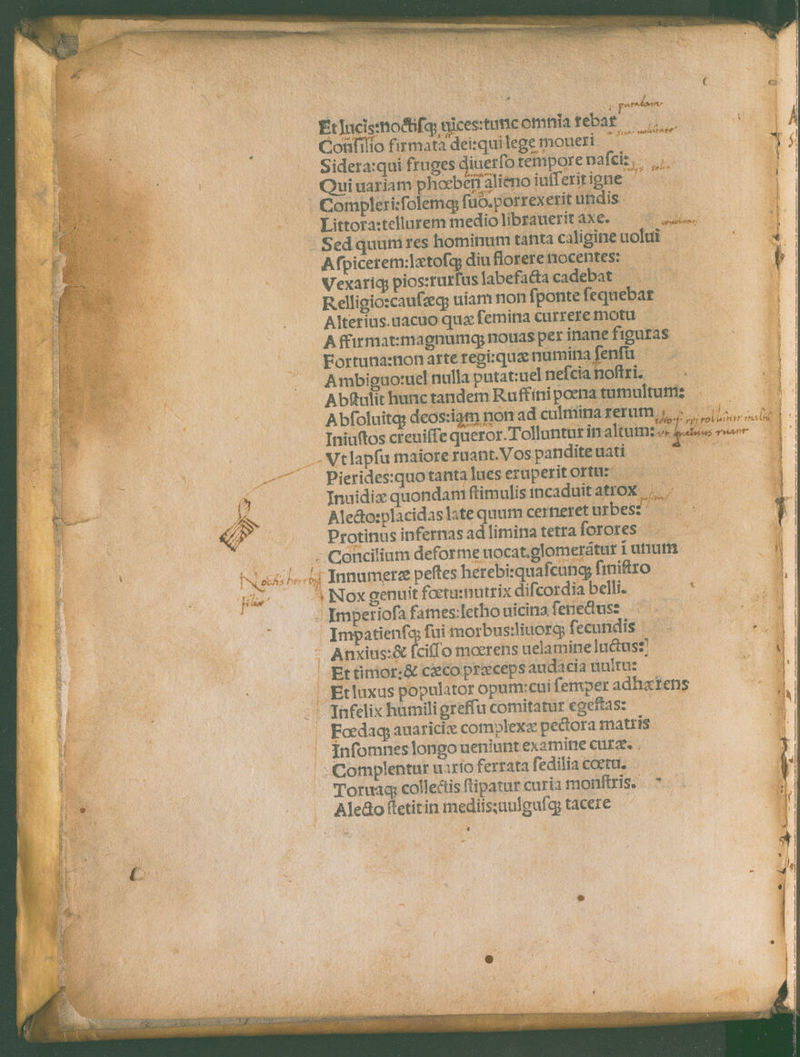 putabam
Et lucis:noctisq; uices:tunc omnia rebar
Consilio firmata dei:qui lege moueri
Sidera:qui fruges diuerso tempore nasci:
Qui uariam phœben alieno iusserit igne
Compleri:solemq; suo.porrexerit undis
Littora:tellurem medio librauerit axe.
Sed quum res hominum tanta caligine uolui
Aspicerem:lætosq; diu florere nocentes:
Vexariq; pios:rursus labefacta cadebat
Relligio:causæq; uiam non sponte sequebar
Alterius.uacuo quæ semina currere motu
Affirmat:magnumq; nouas per inane figuras
Fortuna:non arte regi:quæ numina sensu
Ambiguo:uel nulla putat:uel nescia nostri.
Abstulit hunc tandem Ruffini pœna tumultum:
Absoluitq; deos:iam non ad culmina rerum
Iniustos creuisse queror.Tolluntur in altum:
Vt lapsu maiore ruant.Vos pandite uati
Pierides:quo tanta lues eruperit ortu:
Inuidiæ quondam stimulis incaduit atrox
Alecto:placidas late quum cerneret urbes:
Protinus infernas ad limina tetra sorores
Concilium deforme uocat.glomerātur ī unum
Innumeræ pestes herebi:quascunq; sinistro
Noctis herebiq;
filie
Nox genuit fœtu:nutrix discordia belli.
Imperiosa fames:letho uicina senectus:
Impatiensq; sui morbus:liuorq; secundis
Anxius:& scisso mœrens uelamine luctus:
Et timor:& cæco præceps audacia uultu:
Et luxus populator opum:cui semper adhærens
Infelix humili gressu comitatur egestas:
Fœdaq; auariciæ complexæ pectora matris
Insomnes longo ueniunt examine curæ.
Complentur uario ferrata sedilia cœtu.
Toruaq; collectis stipatur curia monstris.
Alecto stetit in mediis:uulgusq; tacere